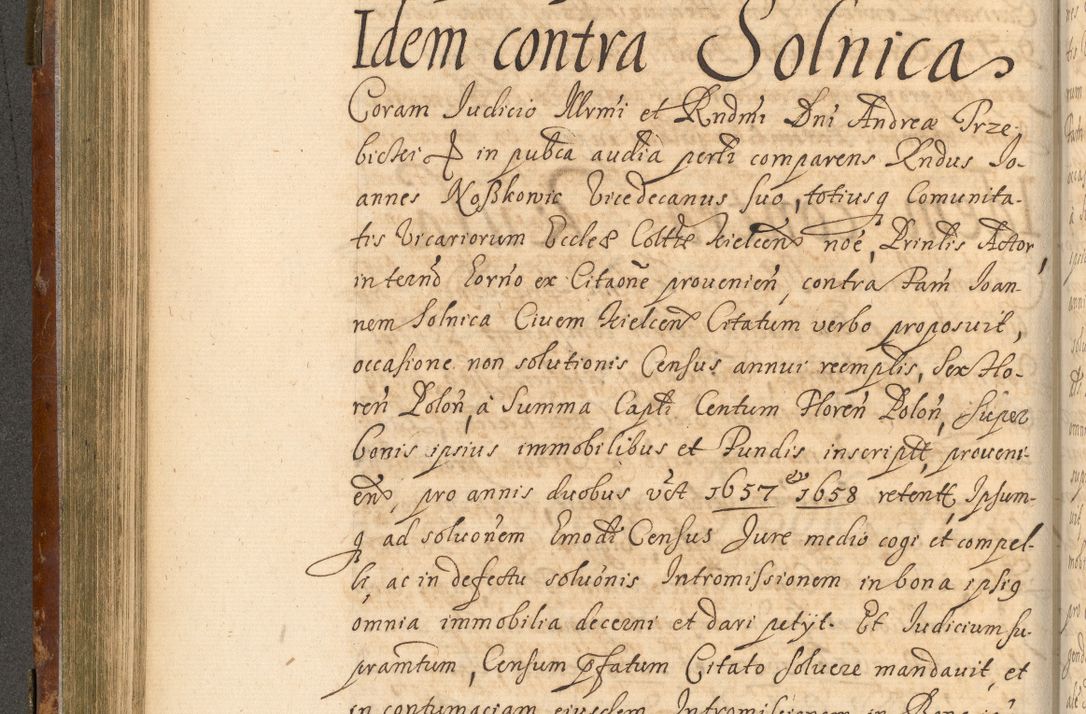 Idem contra Solnica
Coram Iudicio Illrmi et Rndmi Dni Andreæ Trze-
bicki in pubca audia perti comparens Rndus Io-
annes Noßkowic Vicedecanus suo, totiusq Comunita-
tis Vicariorum Eccles Colttæ Kielcen noe, Prinlis Actor,
in termo horno ex Citaone prouenien, contra Fam Ioan
nem Solnica Ciuem Kielcen Citatum verbo proposuit,
occasione non solutionis Census annui reemplis, Sex Flo-
ren Polon, à Summa Capti Centum Floren Polon, super
bonis ipsius immobilibus et Fundis inscriptt, proueni-
en, pro annis duobus vct 1657 et 1658 retentt, Ipsum-
q ad soluonem Emodi Census Iure medio cogi et compel-
li, ac in defectu soluonis Intromissionem in bona ipsig
omnia immobilia decerni et dari petÿt. Et Iudicium su-
pramtum, Censum pfatum Citato soluere mandauit, et
in contumaciam eiusdem Intromissionem in Bona